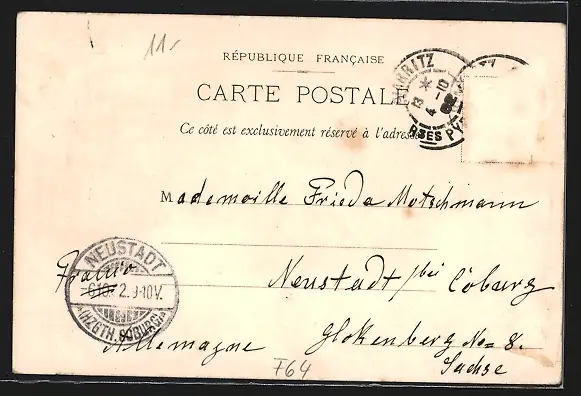 11-
RÉPUBLIQUE FRANÇAISE
CARTE POSTALE
Ce côté est exclusivement réservé à l'adresse
BIARRITZ
13 * 4 -10 02
BSES PYR
Mademoille Frieda Motschmann
Neustadt / bei Coburg
Glokenberg No= 8.
Sachse
Allemagne
NEUSTADT
2. 9-10V.
(HZGTH. COBURG)
F64